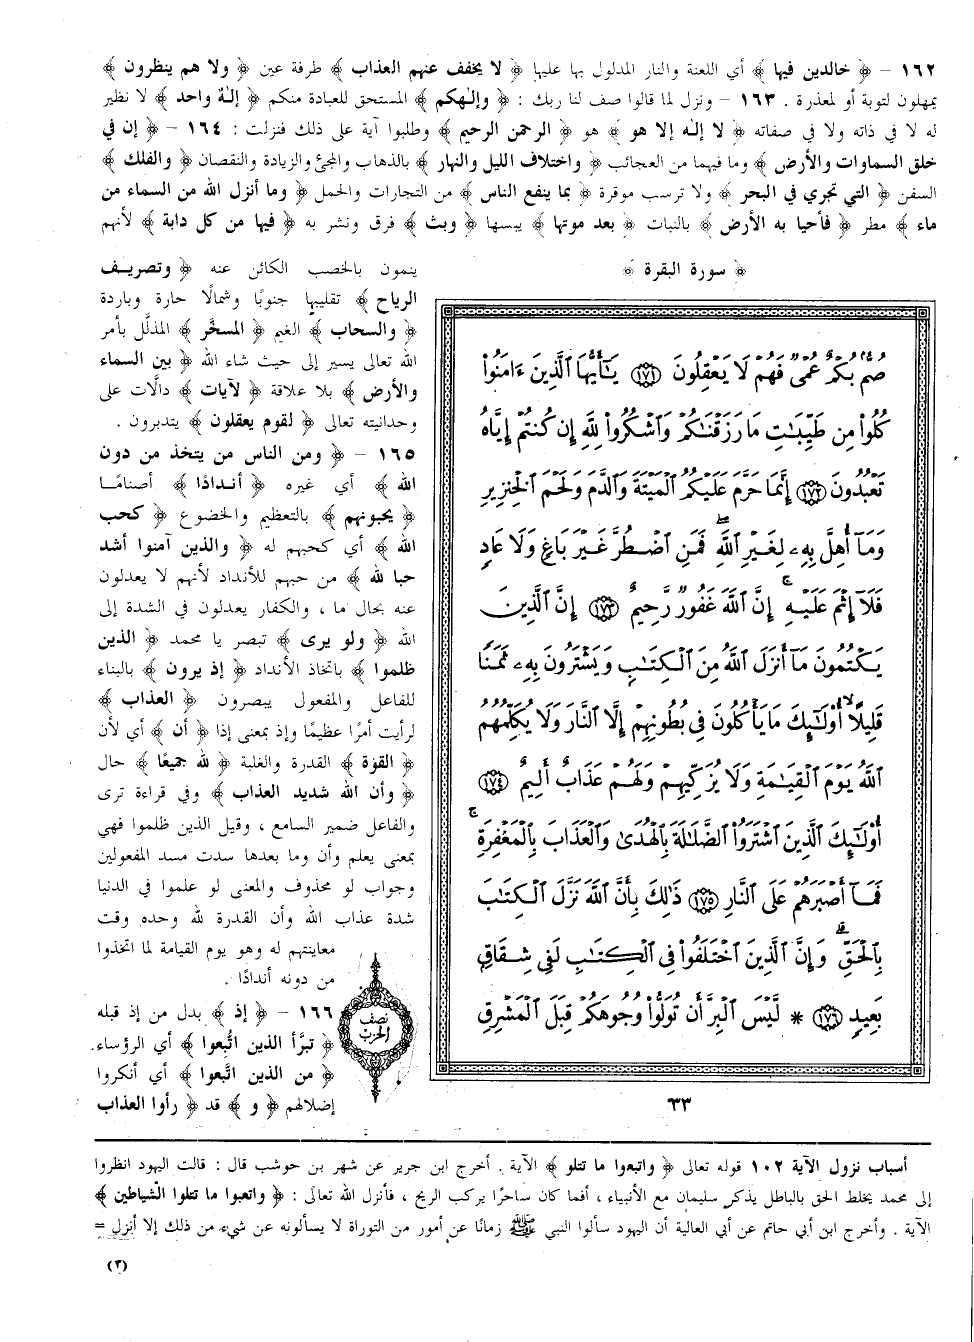 ١٦٢ - ﴿ خالدين فيها ﴾ أي اللعنة والنار المدلول بها عليها ﴿ لا يخفف عنهم العذاب ﴾ طرفة عين ﴿ ولا هم ينظرون ﴾
يمهلون لتوبة أو لمعذرة . ١٦٣ - ونزل لما قالوا صف لنا ربك : ﴿ وإلهكم ﴾ المستحق للعبادة منكم ﴿ إله واحد ﴾ لا نظير
له لا في ذاته ولا في صفاته ﴿ لا إله إلا هو ﴾ هو ﴿ الرحمن الرحيم ﴾ وطلبوا آية على ذلك فنزلت : ١٦٤ - ﴿ إن في
خلق السماوات والأرض ﴾ وما فيهما من العجائب ﴿ واختلاف الليل والنهار ﴾ بالذهاب والمجئ والزيادة والنقصان ﴿ والفلك ﴾
السفن ﴿ التي تجري في البحر ﴾ ولا ترسب موقرة ﴿ بما ينفع الناس ﴾ من التجارات والحمل ﴿ وما أنزل الله من السماء من
ماء ﴾ مطر ﴿ فأحيا به الأرض ﴾ بالنبات ﴿ بعد موتها ﴾ يبسها ﴿ وبث ﴾ فرق ونشر به ﴿ فيها من كل دابة ﴾ لأنهم
﴿ سورة البقرة ﴾
صُمٌّۢ بُكْمٌ عُمْىٌ فَهُمْ لَا يَعْقِلُونَ ١٧١ يَٰٓأَيُّهَا ٱلَّذِينَ ءَامَنُوا۟
كُلُوا۟ مِن طَيِّبَٰتِ مَا رَزَقْنَٰكُمْ وَٱشْكُرُوا۟ لِلَّهِ إِن كُنتُمْ إِيَّاهُ
تَعْبُدُونَ ١٧٢ إِنَّمَا حَرَّمَ عَلَيْكُمُ ٱلْمَيْتَةَ وَٱلدَّمَ وَلَحْمَ ٱلْخِنزِيرِ
وَمَآ أُهِلَّ بِهِۦ لِغَيْرِ ٱللَّهِۖ فَمَنِ ٱضْطُرَّ غَيْرَ بَاغٍ وَلَا عَادٍ
فَلَآ إِثْمَ عَلَيْهِۚ إِنَّ ٱللَّهَ غَفُورٌ رَّحِيمٌ ١٧٣ إِنَّ ٱلَّذِينَ
يَكْتُمُونَ مَآ أَنزَلَ ٱللَّهُ مِنَ ٱلْكِتَٰبِ وَيَشْتَرُونَ بِهِۦ ثَمَنًا
قَلِيلًاۙ أُو۟لَٰٓئِكَ مَا يَأْكُلُونَ فِى بُطُونِهِمْ إِلَّا ٱلنَّارَ وَلَا يُكَلِّمُهُمُ
ٱللَّهُ يَوْمَ ٱلْقِيَٰمَةِ وَلَا يُزَكِّيهِمْ وَلَهُمْ عَذَابٌ أَلِيمٌ ١٧٤
أُو۟لَٰٓئِكَ ٱلَّذِينَ ٱشْتَرَوُا۟ ٱلضَّلَٰلَةَ بِٱلْهُدَىٰ وَٱلْعَذَابَ بِٱلْمَغْفِرَةِۚ
فَمَآ أَصْبَرَهُمْ عَلَى ٱلنَّارِ ١٧٥ ذَٰلِكَ بِأَنَّ ٱللَّهَ نَزَّلَ ٱلْكِتَٰبَ
بِٱلْحَقِّۗ وَإِنَّ ٱلَّذِينَ ٱخْتَلَفُوا۟ فِى ٱلْكِتَٰبِ لَفِى شِقَاقٍۭ
بَعِيدٍ ١٧٦ * لَّيْسَ ٱلْبِرَّ أَن تُوَلُّوا۟ وُجُوهَكُمْ قِبَلَ ٱلْمَشْرِقِ
٣٣
ينمون بالخصب الكائن عنه ﴿ وتصريف
الرياح ﴾ تقليبها جنوبًا وشمالًا حارة وباردة
﴿ والسحاب ﴾ الغيم ﴿ المسخَّر ﴾ المذلَّل بأمر
الله تعالى يسير إلى حيث شاء الله ﴿ بين السماء
والأرض ﴾ بلا علاقة ﴿ لآيات ﴾ دالات على
وحدانيته تعالى ﴿ لقوم يعقلون ﴾ يتدبرون .
١٦٥ - ﴿ ومن الناس من يتخذ من دون
الله ﴾ أي غيره ﴿ أندادًا ﴾ أصنامًا
﴿ يحبونهم ﴾ بالتعظيم والخضوع ﴿ كحب
الله ﴾ أي كحبهم له ﴿ والذين آمنوا أشد
حبا لله ﴾ من حبهم للأنداد لأنهم لا يعدلون
عنه بحال ما ، والكفار يعدلون في الشدة إلى
الله ﴿ ولو يرى ﴾ تبصر يا محمد ﴿ الذين
ظلموا ﴾ باتخاذ الأنداد ﴿ إذ يرون ﴾ بالبناء
للفاعل والمفعول يبصرون ﴿ العذاب ﴾
لرأيت أمرًا عظيمًا وإذ بمعنى إذا ﴿ أن ﴾ أي لأن
﴿ القوة ﴾ القدرة والغلبة ﴿ لله جميعًا ﴾ حال
﴿ وأن الله شديد العذاب ﴾ وفي قراءة ترى
والفاعل ضمير السامع ، وقيل الذين ظلموا فهي
بمعنى يعلم وأن وما بعدها سدت مسد المفعولين
وجواب لو محذوف والمعنى لو علموا في الدنيا
شدة عذاب الله وأن القدرة لله وحده وقت
معاينتهم له وهو يوم القيامة لما اتخذوا
من دونه أندادًا .
١٦٦ - ﴿ إذ ﴾ بدل من إذ قبله
﴿ تبرَّأ الذين اتُّبعوا ﴾ أي الرؤساء.
﴿ من الذين اتَّبعوا ﴾ أي أنكروا
إضلالهم ﴿ و ﴾ قد ﴿ رأوا العذاب
نصف
الحزب
أسباب نزول الآية ١٠٢ قوله تعالى ﴿ واتبعوا ما تتلو ﴾ الآية . أخرج ابن جرير عن شهر بن حوشب قال : قالت اليهود انظروا
إلى محمد يخلط الحق بالباطل يذكر سليمان مع الأنبياء ، أفما كان ساحرًا يركب الريح ، فأنزل الله تعالى : ﴿ واتبعوا ما تتلوا الشياطين ﴾
الآية . وأخرج ابن أبي حاتم عن أبي العالية أن اليهود سألوا النبي ﷺ زمانًا عن أمور من التوراة لا يسألونه عن شيء من ذلك إلا أنزل =
(٣)